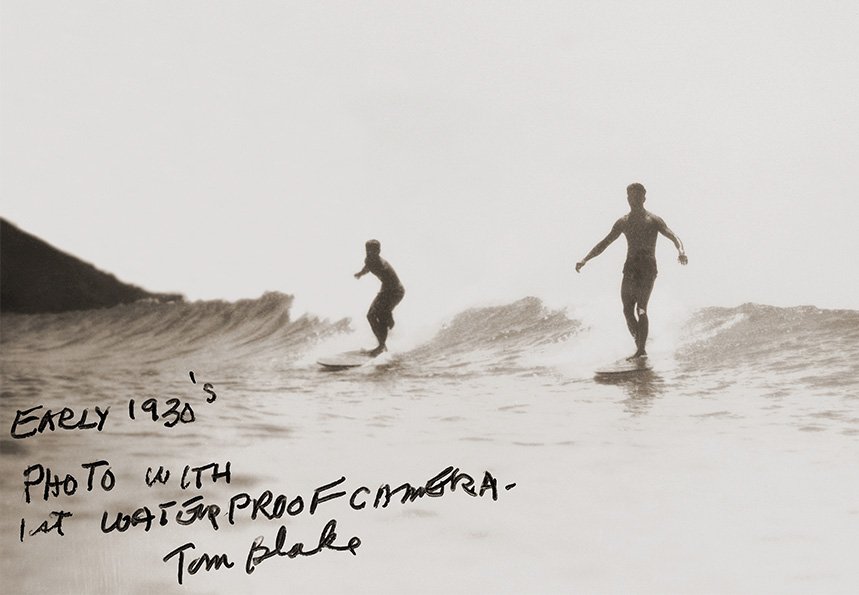 EARLY 1930's
PHOTO WITH
1st WATERPROOF CAMERA-
Tom Blake